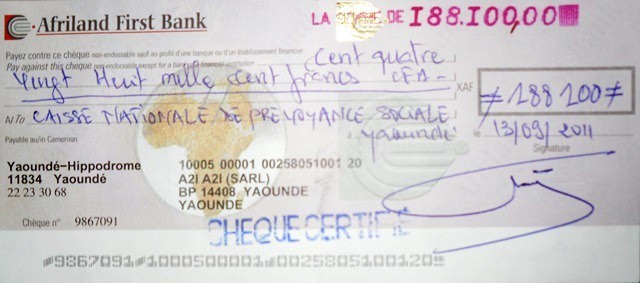 Afriland First Bank
LA SOMME DE 188.100,00
Payez contre ce chèque non-endossable sauf au profit d'une banque ou d'un établissement financier
Pay against this cheque non-endossable except for a bank or financial institution
Cent quatre
Vingt Huit mille cent francs CFA
XAF ≠188 100≠
A/To CAISSE NATIONALE DE PREVOYANCE SOCIALE
Payable au/in Cameroun
Yaoundé le 13/09/2011
Signature
Yaoundé-Hippodrome
11834 Yaoundé
22 23 30 68
10005 00001 00258051001 20
A2I A2I (SARL)
BP 14408 YAOUNDE
YAOUNDE
Chèque n° 9867091
CHEQUE CERTIFIÉ
9867091 1000500001 00258051001 20